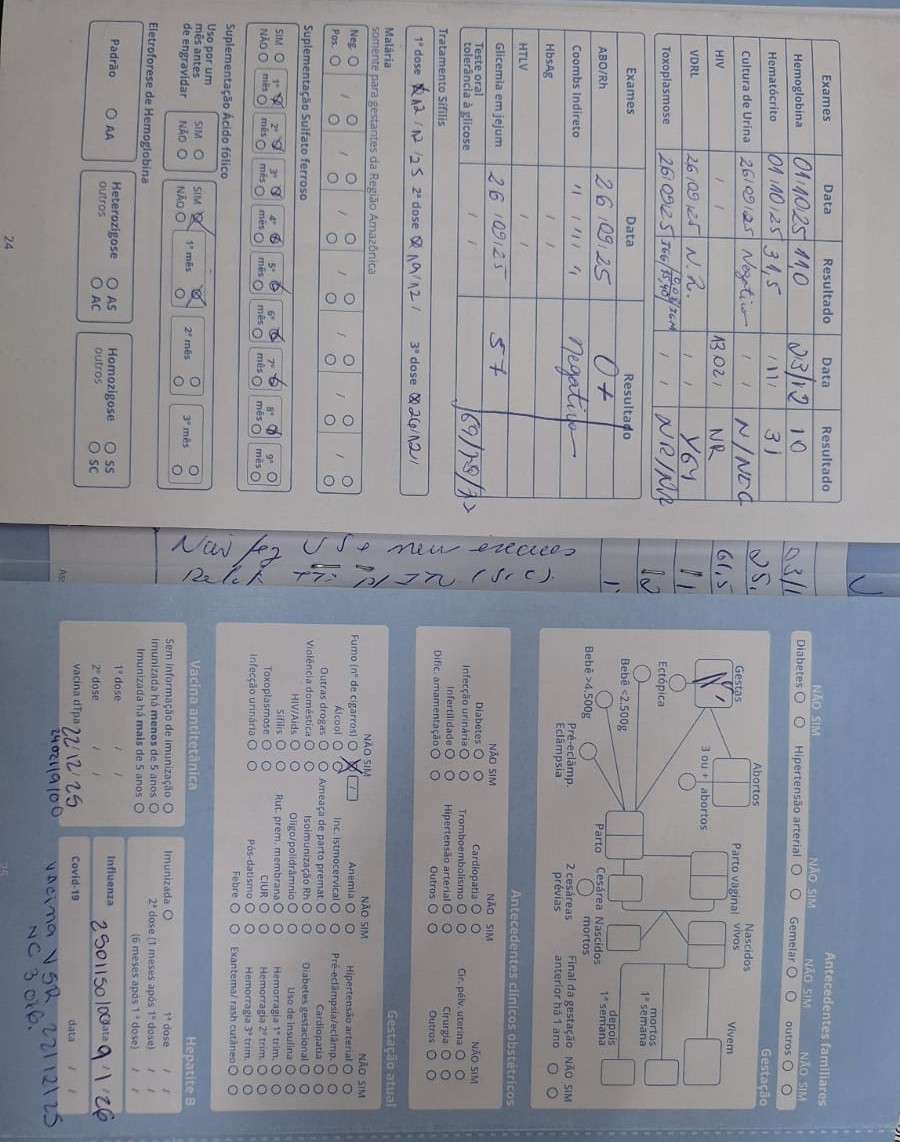 Exames Data Resultado Data Resultado
Hemoglobina 01/10/25 11,0 23/12 10
Hematócrito 01/10/25 31,5 / / 31
Cultura de Urina 26/09/25 Negativo / / N/NEG
HIV / / 13 02/ NR
VDRL 26/09/25 N.R. / / 1/64
Toxoplasmose 26/09/25 / / NR/NR
Exames Data Resultado
ABO/Rh 26/09/25 O+
Coombs Indireto " " " Negativo
HbsAg / /
HTLV / /
Glicemia em jejum 26/09/25 57
Teste oral
tolerância à glicose / / 69/79/72
Tratamento Sífilis
1ª dose 12/12/25 2ª dose 19/12/ 3ª dose 26/12/
Malária
somente para gestantes da Região Amazônica
Neg. / / / / / /
Pos.
Suplementação Sulfato ferroso
SIM 1º 2º 3º 4º 5º 6º 7º 8º 9º
NÃO mês mês mês mês mês mês mês mês mês
Suplementação Ácido fólico
Uso por um
mês antes
de engravidar
SIM SIM
NÃO NÃO 1º mês 2º mês 3º mês
Eletroforese de Hemoglobina
Padrão AA
Heterozigose AS
outros AC
Homozigose SS
outros SC
24
03/1
25,
61,5
Não fez US + new exames
Antecedentes familiares
NÃO SIM NÃO SIM NÃO SIM NÃO SIM
Diabetes Hipertensão arterial Gemelar outros
Gestação
Gestas Abortos Parto vaginal Nascidos
vivos Vivem
Ectópica 3 ou + abortos
mortos
1ª semana
Bebê <2.500g Parto Cesárea Nascidos
mortos depois
1ª semana
Bebê >4.500g Pré-eclâmp.
Eclâmpsia 2 cesáreas
prévias Final da gestação
anterior há 1 ano NÃO SIM
Antecedentes clínicos obstétricos
NÃO SIM NÃO SIM NÃO SIM
Diabetes Cardiopatia Cir. pélv. uterina
Infecção urinária Tromboembolismo Cirurgia
Infertilidade Hipertensão arterial Outros
Dific. amamentação Outros
Gestação atual
NÃO SIM NÃO SIM NÃO SIM
Fumo (nº de cigarros) Anemia Hipertensão arterial
Álcool Inc. istmocervical Pré-eclâmpsia/eclâmp.
Outras drogas Ameaça de parto premat. Cardiopatia
Violência doméstica Isoimunização Rh Diabetes gestacional
HIV/Aids Oligo/polidrâmnio Uso de insulina
Sífilis Rut. prem. membrana Hemorragia 1º trim.
Toxoplasmose CIUR Hemorragia 2º trim.
Infecção urinária Pós-datismo Hemorragia 3º trim.
Febre Exantema/ rash cutâneo
Vacina antitetânica
Sem informação de imunização
Imunizada há menos de 5 anos
Imunizada há mais de 5 anos
1ª dose / /
2ª dose / /
vacina dTpa 22/12/25
Hepatite B
Imunizada 1ª dose / /
2ª dose (1 meses após 1ª dose) / /
(6 meses após 1ª dose) / /
Influenza data 9/1/26
Covid-19 data / /
Vacina VSR 22/12/25